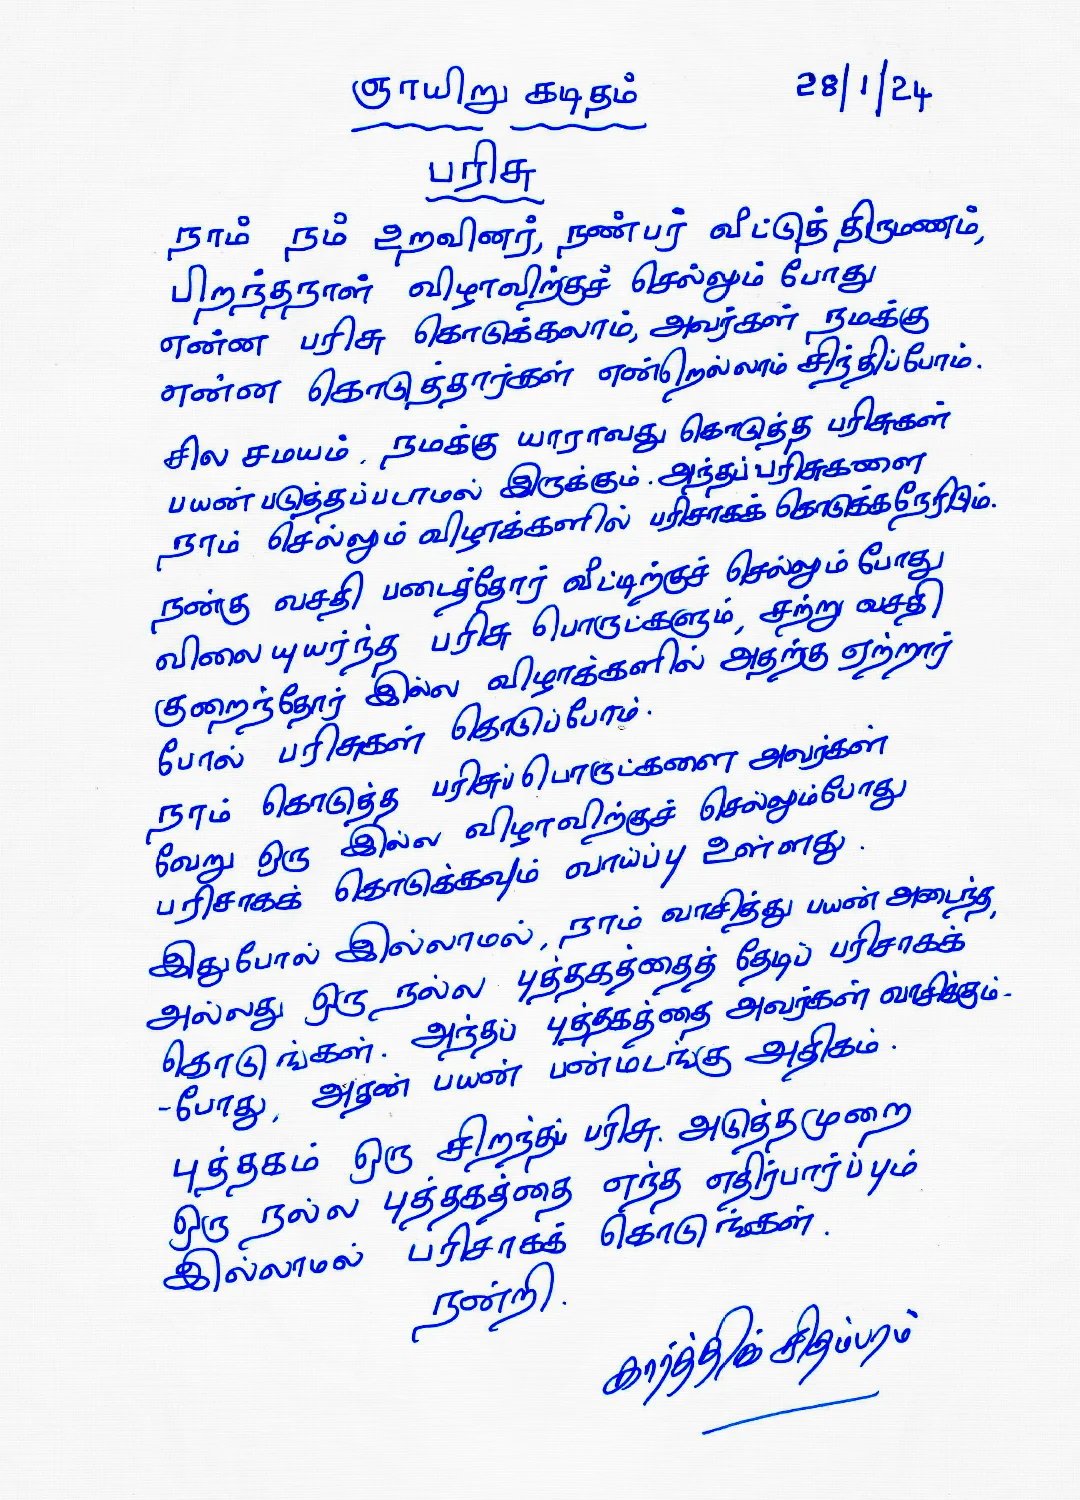 ஞாயிறு கடிதம் 28/1/24
பரிசு
நாம் நம் உறவினர், நண்பர் வீட்டுத் திருமணம்,
பிறந்தநாள் விழாவிற்குச் செல்லும் போது
என்ன பரிசு கொடுக்கலாம், அவர்கள் நமக்கு
என்ன கொடுத்தார்கள் என்றெல்லாம் சிந்திப்போம்.
சில சமயம், நமக்கு யாராவது கொடுத்த பரிசுகள்
பயன் படுத்தப்படாமல் இருக்கும். அந்தப் பரிசுகளை
நாம் செல்லும் விழாக்களில் பரிசாகக் கொடுக்கநேரிடும்.
நன்கு வசதி படைத்தோர் வீட்டிற்குச் செல்லும் போது
விலை யுயர்ந்த பரிசு பொருட்களும், சற்று வசதி
குறைந்தோர் இல்ல விழாக்களில் அதற்கு ஏற்றார்
போல் பரிசுகள் கொடுப்போம்.
நாம் கொடுத்த பரிசுப் பொருட்களை அவர்கள்
வேறு ஒரு இல்ல விழாவிற்குச் செல்லும்போது
பரிசாகக் கொடுக்கவும் வாய்ப்பு உள்ளது.
இதுபோல் இல்லாமல், நாம் வாசித்து பயன் அடைந்த,
அல்லது ஒரு நல்ல புத்தகத்தைத் தேடிப் பரிசாகக்
கொடுங்கள். அந்தப் புத்தகத்தை அவர்கள் வாசிக்கும்-
-போது, அதன் பயன் பன்மடங்கு அதிகம்.
புத்தகம் ஒரு சிறந்தப் பரிசு. அடுத்தமுறை
ஒரு நல்ல புத்தகத்தை எந்த எதிர்பார்ப்பும்
இல்லாமல் பரிசாகக் கொடுங்கள்.
நன்றி.
கார்த்திக் சிதம்பரம்